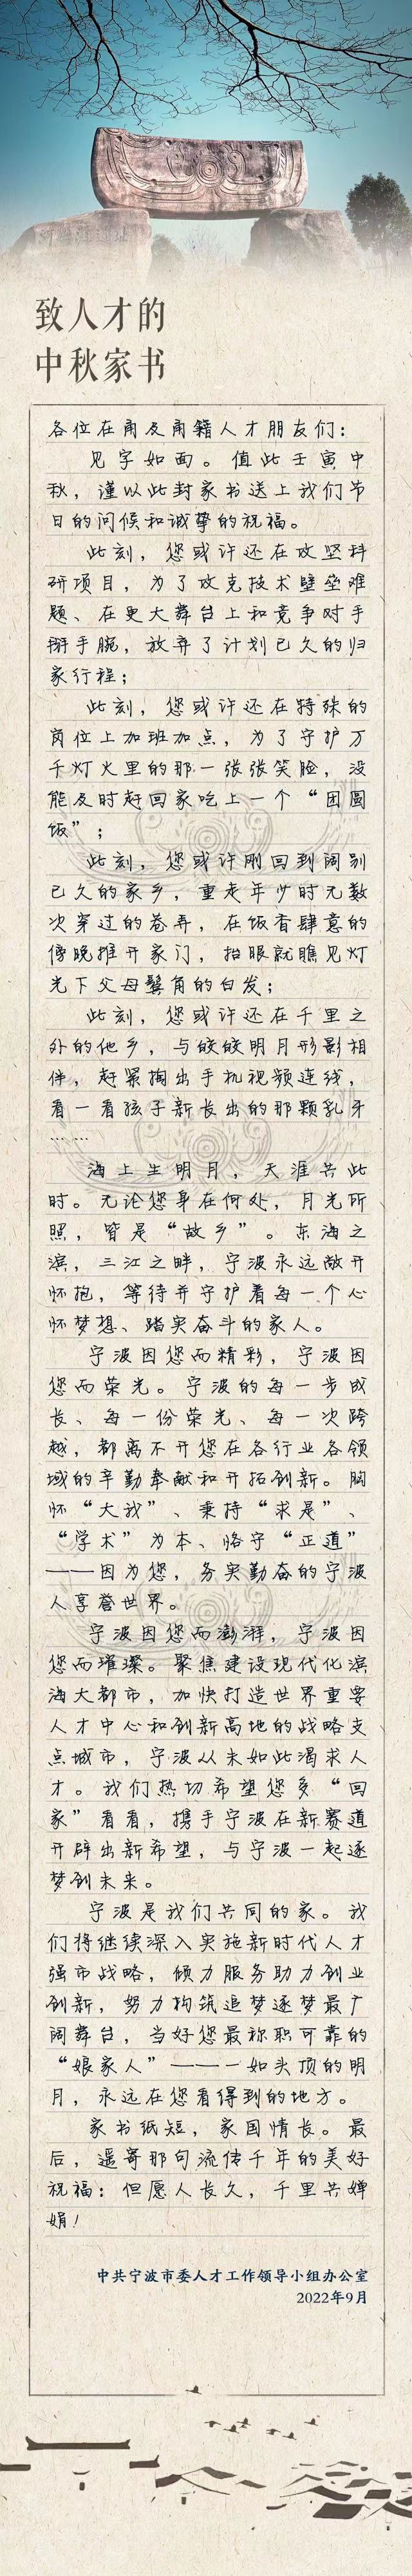 河姆渡遗址
致人才的
中秋家书
各位在甬及甬籍人才朋友们：
见字如面。值此壬寅中
秋，谨以此封家书送上我们节
日的问候和诚挚的祝福。
此刻，您或许还在攻坚科
研项目，为了攻克技术壁垒难
题、在更大舞台上和竞争对手
掰手腕，放弃了计划已久的归
家行程；
此刻，您或许还在特殊的
岗位上加班加点，为了守护万
千灯火里的那一张张笑脸，没
能及时赶回家吃上一个“团圆
饭”；
此刻，您或许刚回到阔别
已久的家乡，重走年少时无数
次穿过的巷弄，在饭香肆意的
傍晚推开家门，抬眼就瞧见灯
光下父母鬓角的白发；
此刻，您或许还在千里之
外的他乡，与皎皎明月形影相
伴，赶紧掏出手机视频连线，
看一看孩子新长出的那颗乳牙
……
海上生明月，天涯共此
时。无论您身在何处，月光所
照，皆是“故乡”。东海之
滨，三江之畔，宁波永远敞开
怀抱，等待并守护着每一个心
怀梦想、踏实奋斗的家人。
宁波因您而精彩，宁波因
您而荣光。宁波的每一步成
长、每一份荣光、每一次跨
越，都离不开您在各行业各领
域的辛勤奉献和开拓创新。胸
怀“大我”、秉持“求是”、
“学术”为本、恪守“正道”
——因为您，务实勤奋的宁波
人享誉世界。
宁波因您而澎湃，宁波因
您而璀璨。聚焦建设现代化滨
海大都市，加快打造世界重要
人才中心和创新高地的战略支
点城市，宁波从未如此渴求人
才。我们热切希望您多“回
家”看看，携手宁波在新赛道
开辟出新希望，与宁波一起逐
梦创未来。
宁波是我们共同的家。我
们将继续深入实施新时代人才
强市战略，倾力服务助力创业
创新，努力构筑追梦逐梦最广
阔舞台，当好您最称职可靠的
“娘家人”——一如头顶的明
月，永远在您看得到的地方。
家书纸短，家国情长。最
后，遥寄那句流传千年的美好
祝福：但愿人长久，千里共婵
娟！
中共宁波市委人才工作领导小组办公室
2022年9月